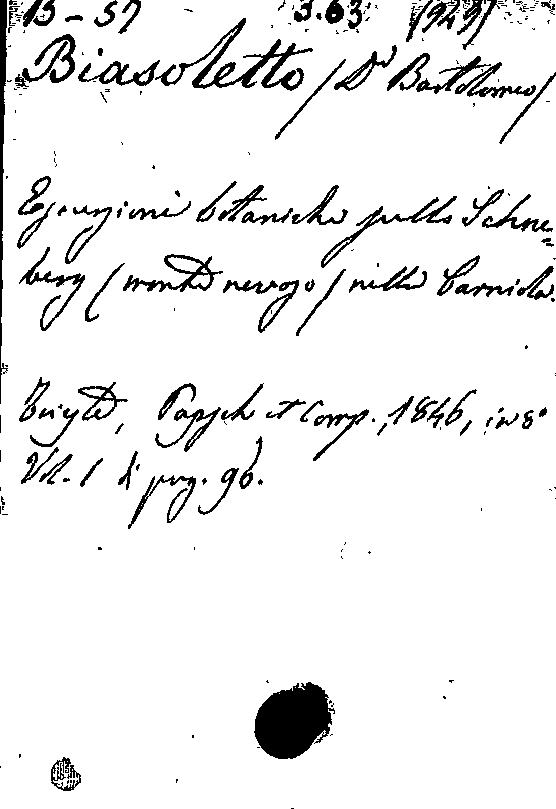 B-57 3.63 (949)
Biasoletto / Dr Bartolomeo /
Escursioni botaniche sullo Schne=
berg / monte nevoso / nella Carniola.
Trieste, Papsch et Comp., 1846, in 8°
Vol. 1 di pag. 96.